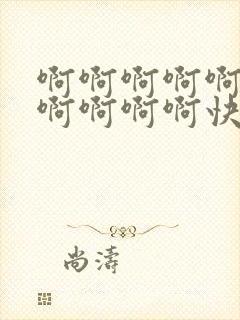 啊啊啊啊啊
啊啊啊啊快
尚濤